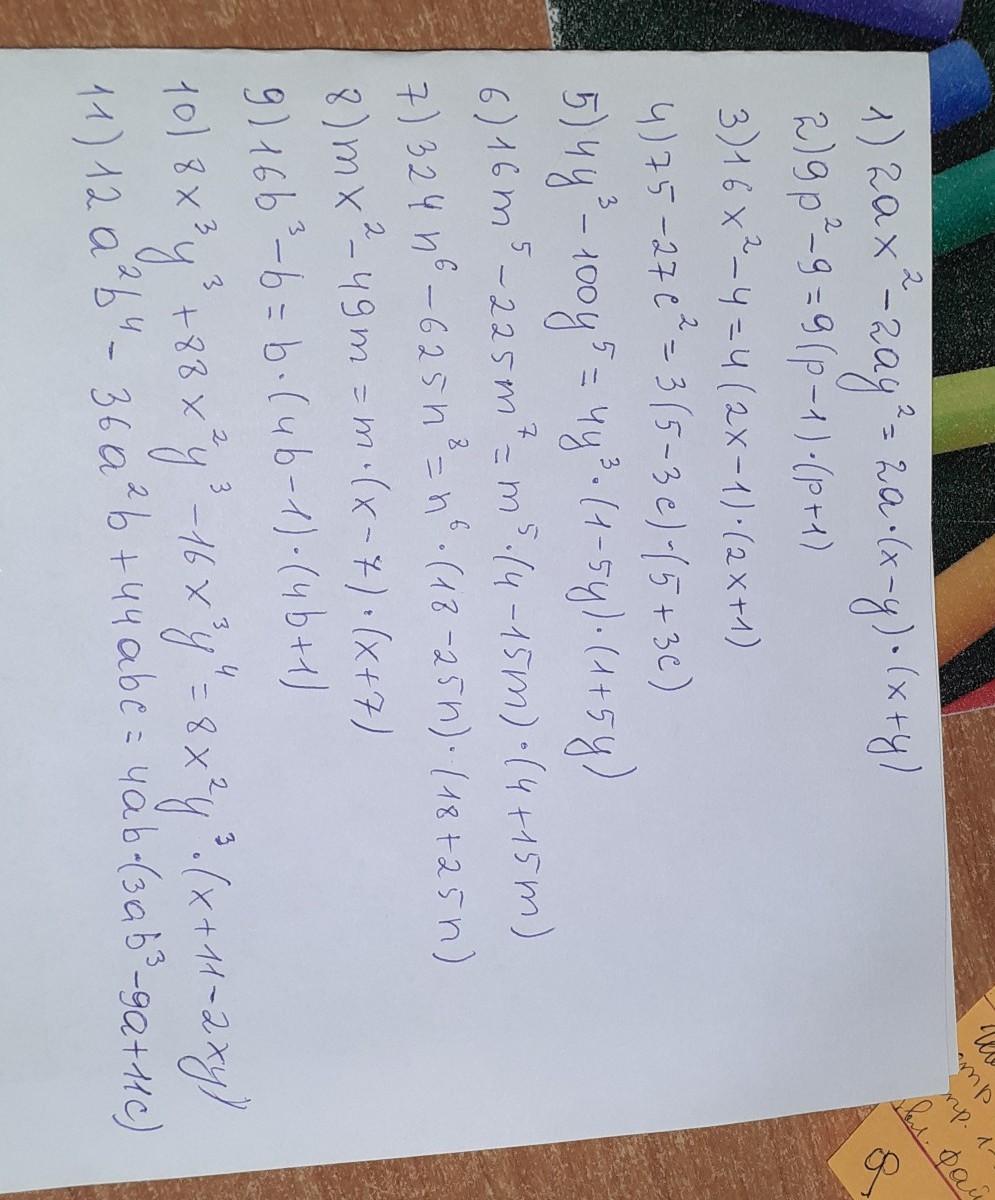 1) 2ax² - 2ay² = 2a·(x-y)·(x+y)
2) 9p² - 9 = 9(p-1)·(p+1)
3) 16x² - 4 = 4(2x-1)·(2x+1)
4) 75 - 27c² = 3(5-3c)·(5+3c)
5) 4y³ - 100y⁵ = 4y³·(1-5y)·(1+5y)
6) 16m⁵ - 225m⁷ = m⁵·(4-15m)·(4+15m)
7) 324n⁶ - 625n⁸ = n⁶·(18-25n)·(18+25n)
8) mx² - 49m = m·(x-7)·(x+7)
9) 16b³ - b = b·(4b-1)·(4b+1)
10) 8x³y³ + 88x²y³ - 16x³y⁴ = 8x²y³·(x+11-2xy)
11) 12a²b⁴ - 36a²b + 44abc = 4ab·(3ab³-9a+11c)
стр
пр. 1-
Ф